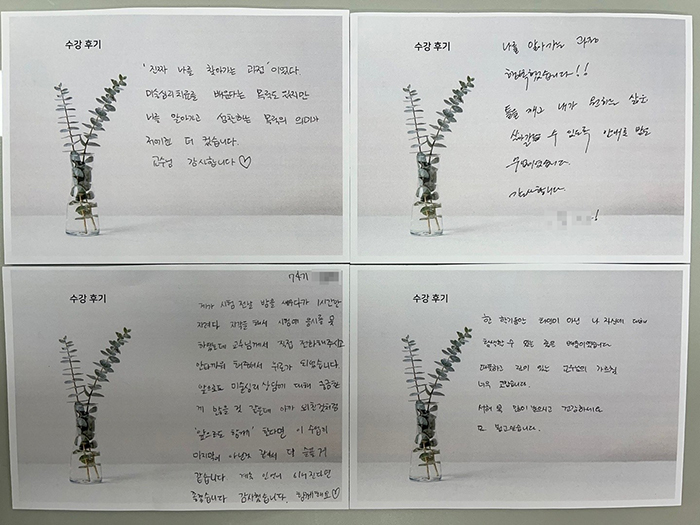 수강 후기
'진짜 나를 찾아가는 과정'이었다.
미술심리치료를 배운다는 목적도 있지만
나를 알아가고 성찰하는 목적의 의미가
저에겐 더 컸습니다.
교수님 감사합니다♡
수강 후기
나를 알아가는 과정
행복했습니다!!
틀을 깨고 내가 원하는 삶을
찾아갈 수 있도록 안내를 받는
감사합니다.
수강 후기
74기
제가 시험 전날 밤을 새우다가 1시간만
자려다 지각을 해서 시험에 응시를 못
하였는데 교수님께서 직접 전화해주시고
안타까워 해주셔서 위로가 되었습니다
앞으로도 미술심리상담에 대해 궁금한
게 많을 것 같은데 아까 외친것처럼
'앞으로도 함께' 한다면 이 수업의
마지막이 아닌것 같아서 덜 슬플 거
같습니다 계속 인연이 이어진다면
좋겠습니다 감사했습니다. 함께해요♡
수강 후기
한 학기동안 타인이 아닌 나 자신에 대해
생각할 수 있는 좋은 배움이었습니다
따뜻하고 깊이 있는 교수님의 가르침
너무 고맙습니다.
새해 복 많이 받으시고 건강하세요
또 뵙고싶습니다.